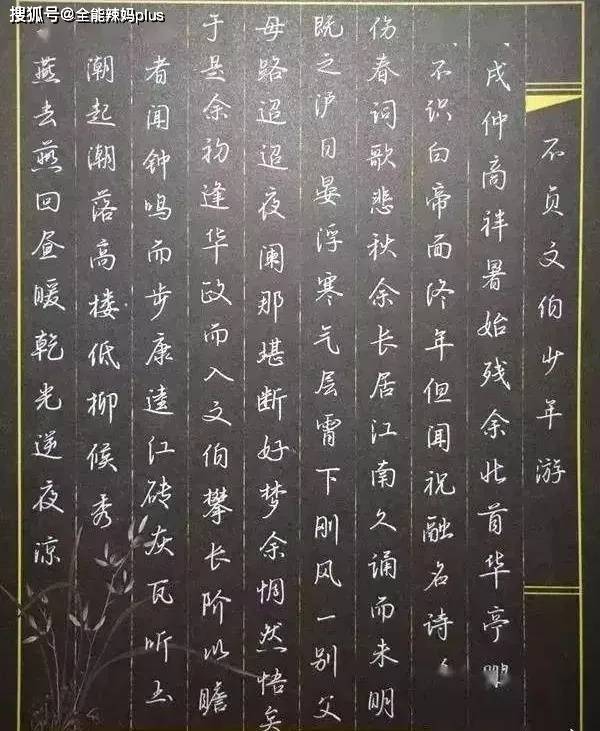 搜狐号@全能辣妈plus
不负文伯少年游
戌仲商祥暑始残余北首华亭
不识白帝面终年但闻祝融名诗
伤春词歌悲秋余长居江南久诵而未明
既之沪日晏浮寒气层霄下刚风一别父
母路迢迢夜阑那堪断好梦余惆然悟矣
于是余初逢华政而入文伯攀长阶以瞻
者闻钟鸣而步康逵江砖灰瓦听
潮起潮落高楼低柳候秀
燕去燕回昼暖乾光逆夜凉